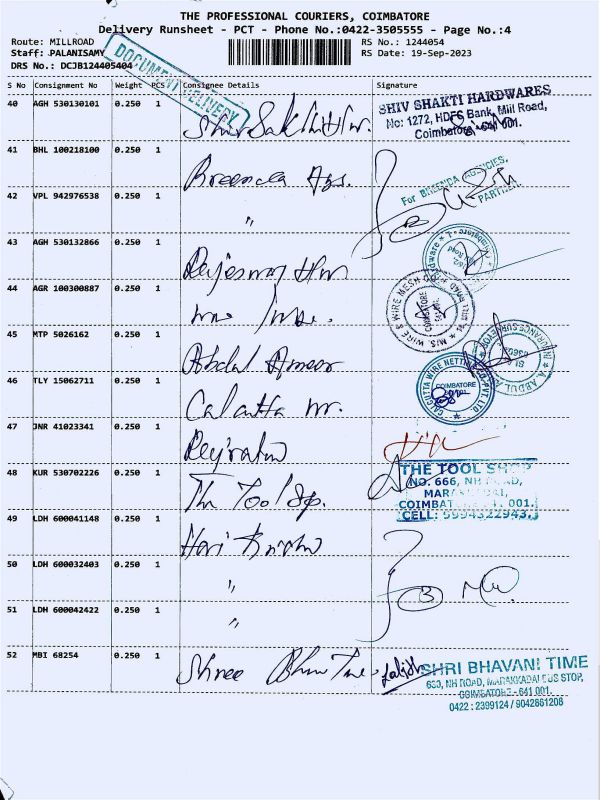 THE PROFESSIONAL COURIERS, COIMBATORE
Delivery Runsheet - PCT - Phone No.:0422-3505555 - Page No.:4
Route: MILLROAD RS No.: 1244054
Staff: PALANISAMY RS Date: 19-Sep-2023
DRS No.: DCJB124405404
DOCUMENT DELIVERY
S No Consignment No Weight PCS Consignee Details Signature
40 AGH 530130101 0.250 1
SHIV SHAKTI HARDWARES
No: 1272, HDFC Bank, Mill Road,
Coimbatore 001.
41 BHL 100218100 0.250 1 Breenda Ags.
For BREENDA AGENCIES,
PARTNER.
42 VPL 942976538 0.250 1 "
43 AGH 530132866 0.250 1
44 AGR 100300887 0.250 1
M/S. WIRE & WIRE MESH
COIMBATORE
45 MTP 5026162 0.250 1 Abdul Ameer
46 TLY 15062711 0.250 1 Calcutta
CALCUTTA WIRE NETTING PVT. LTD
COIMBATORE
47 JNR 41023341 0.250 1
48 KUR 530702226 0.250 1 The Tool Sp.
THE TOOL SHOP
NO. 666, NH ROAD,
COIMBATORE 001.
CELL: 5994322943
49 LDH 600041148 0.250 1 Hari
50 LDH 600032403 0.250 1 "
51 LDH 600042422 0.250 1 "
52 MBI 68254 0.250 1 Shree Bhavani Time Lalith
SHRI BHAVANI TIME
630, NH ROAD, MARAKKADAI BUS STOP,
COIMBATORE - 641 001.
0422 : 2399124 / 9042861208